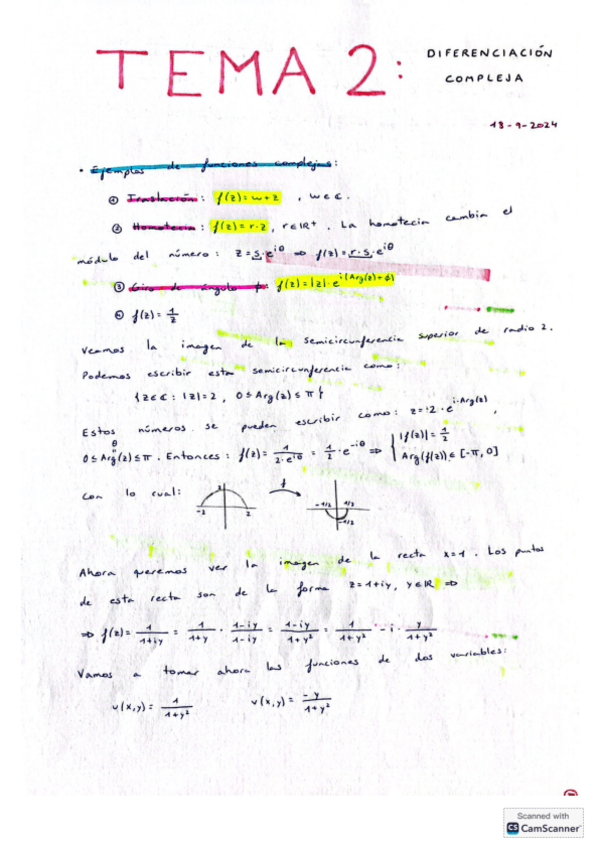 TEMA 2: DIFERENCIACIÓN COMPLEJA
18-9-2024
• Ejemplos de funciones complejas:
① Traslación: f(z)=w+z , w∈ℂ.
② Homotecia: f(z)=r·z, r∈ℝ⁺. La homotecia cambia el
módulo del número: z=s·e^{iθ} ⇒ f(z)=r·s·e^{iθ}
③ Giro de ángulo ϕ: f(z)=|z|·e^{i(Arg(z)+ϕ)}
④ f(z)=1/z
Veamos la imagen de la semicircunferencia superior de radio 2.
Podemos escribir esta semicircunferencia como:
{z∈ℂ: |z|=2, 0≤Arg(z)≤π}
Estos números se pueden escribir como: z=2·e^{i·Arg(z)},
θ
0≤Arg(z)≤π. Entonces: f(z)=1/(2·e^{iθ})=1/2·e^{-iθ} ⇒ { |f(z)|=1/2
Arg(f(z))∈[-π,0]
con lo cual:
f
-2 2 -1/2 1/2
-1/2
Ahora queremos ver la imagen de la recta x=1. Los puntos
de esta recta son de la forma z=1+iy, y∈ℝ ⇒
⇒ f(z)=1/(1+iy)=1/(1+y)·(1-iy)/(1-iy)=(1-iy)/(1+y²)=1/(1+y²)-i·y/(1+y²)
Vamos a tomar ahora las funciones de dos variables:
u(x,y)=1/(1+y²) v(x,y)=-y/(1+y²)
Scanned with
CS CamScanner